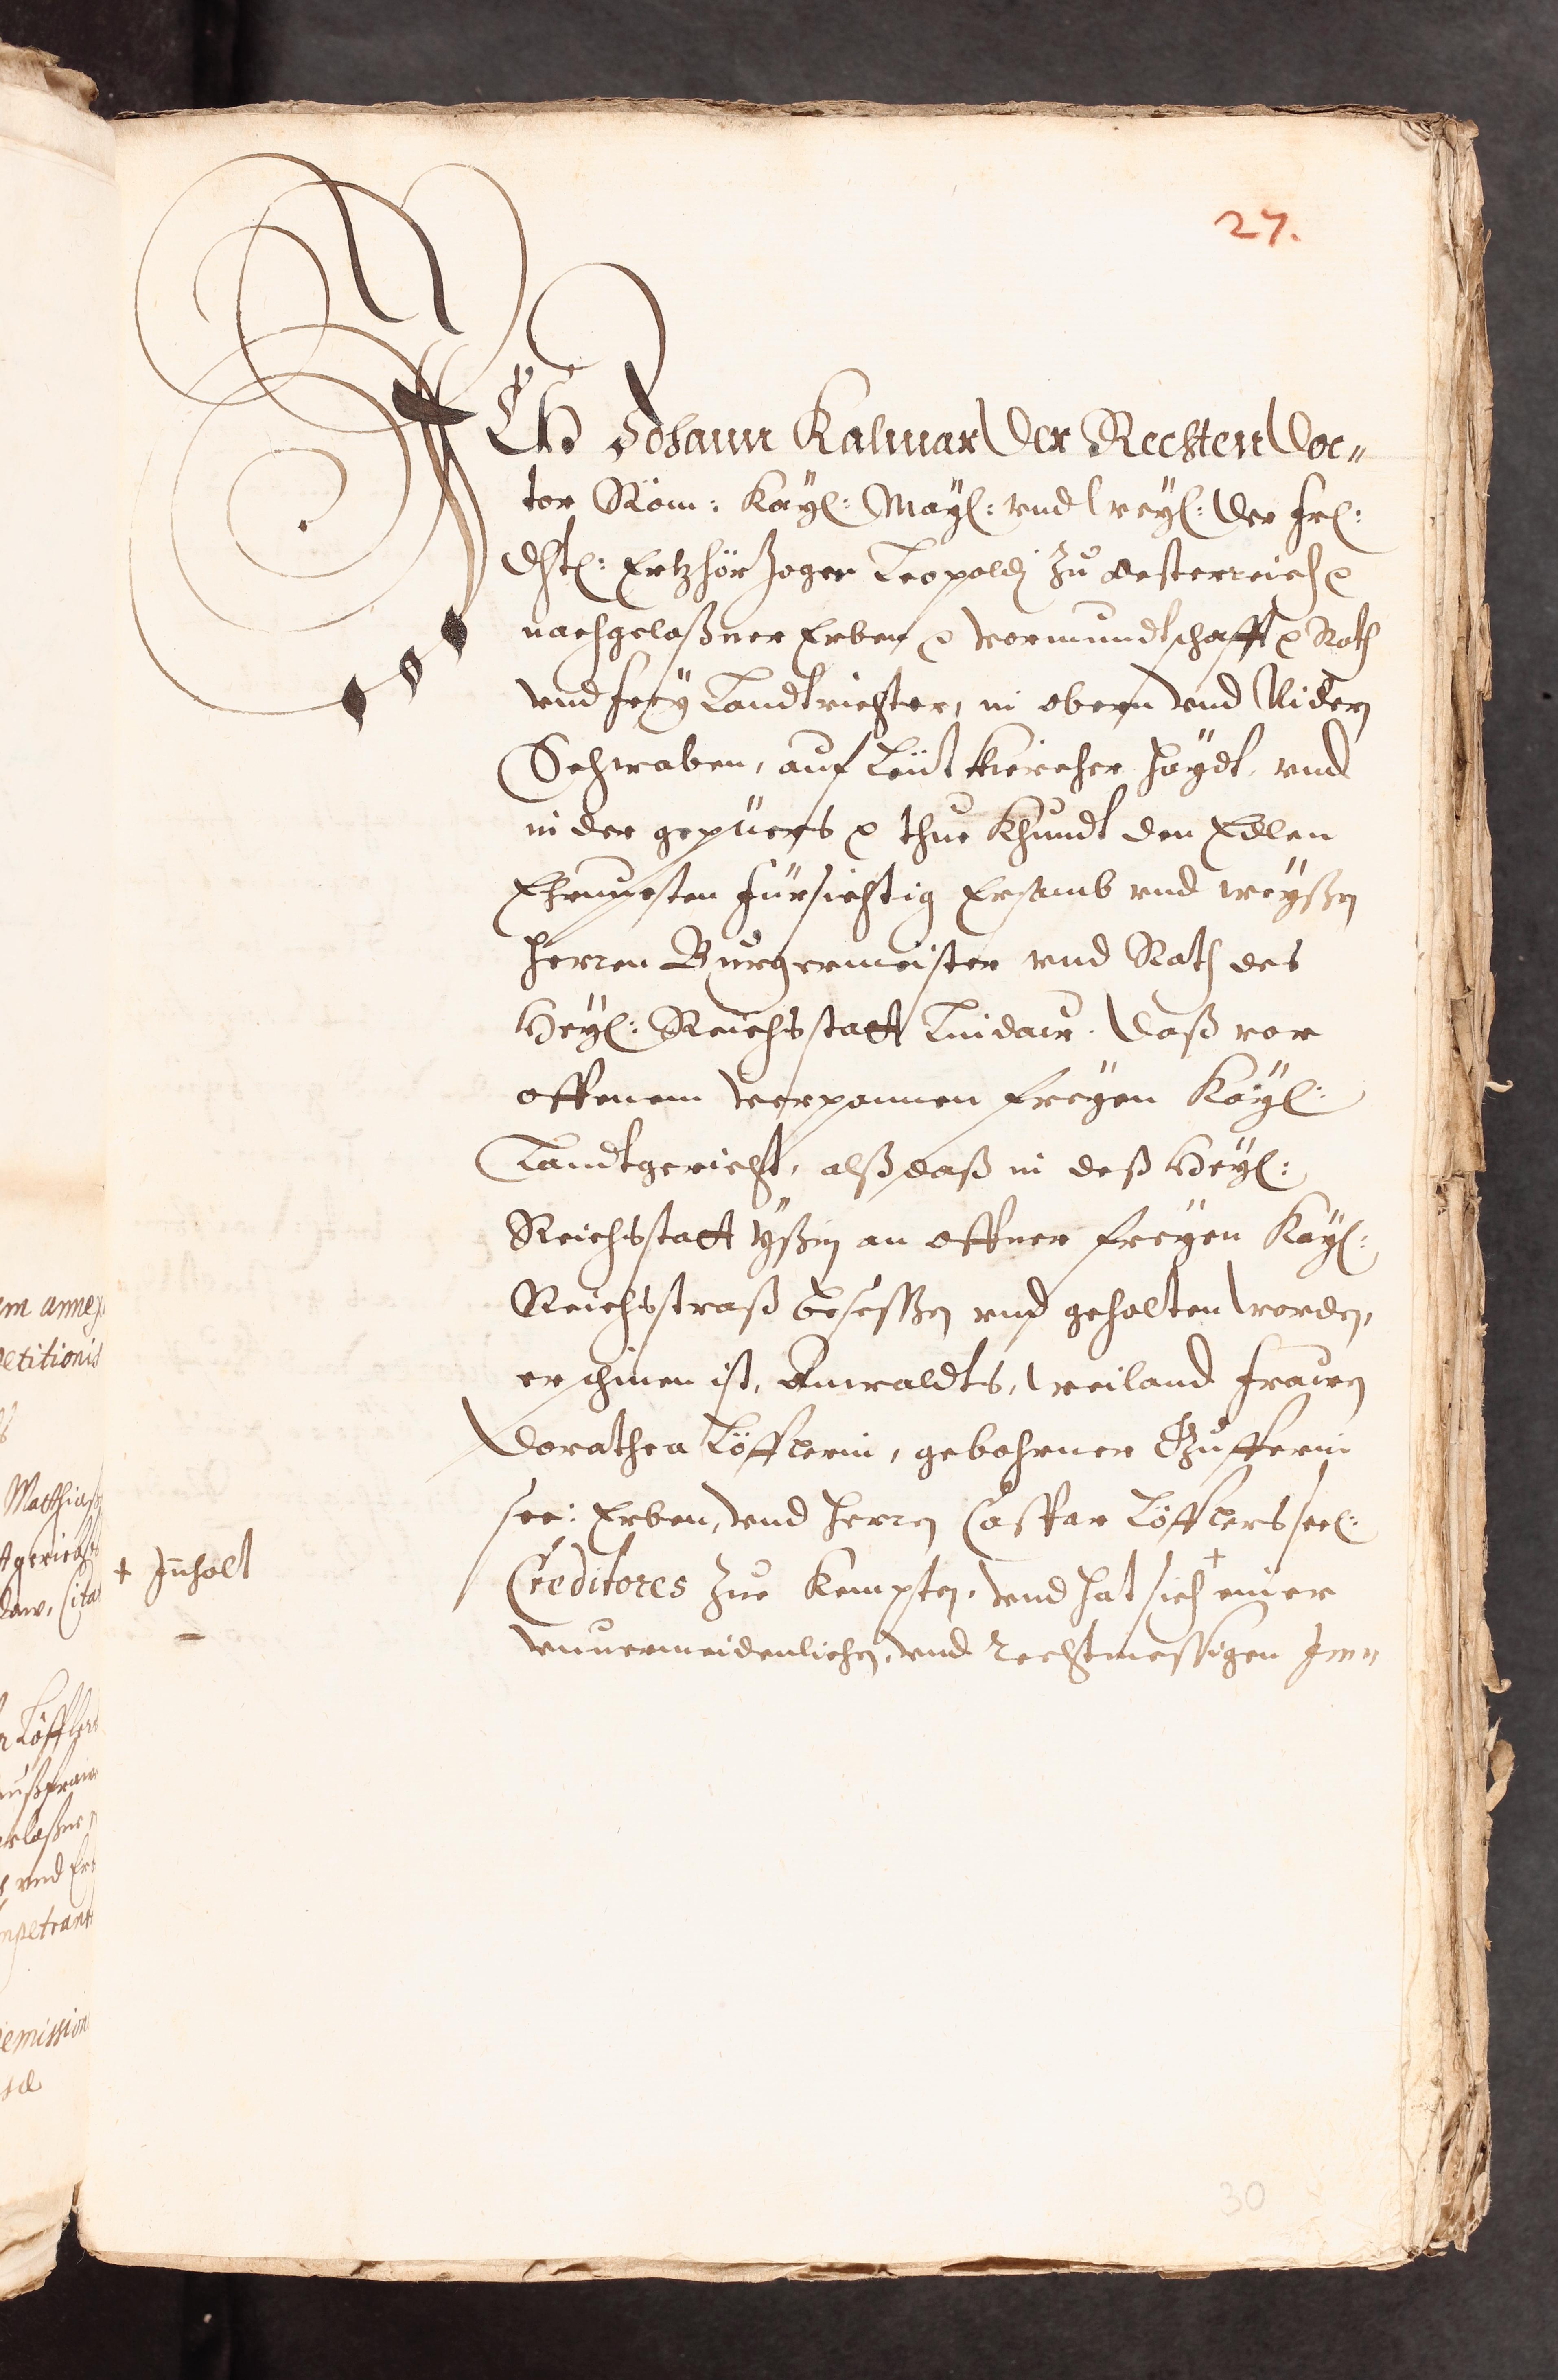 27.
ICh Johann Kalmar der Rechten Doc„
tor Röm: Kayl: Mayl: vnd weyl: der frl:
dhtl: Ertzhörzogen Leopoldj zu Oesterreich ꝛc
nachgelaßner Erben ꝛc vormundtschafft ꝛc Rath
vnd frey Landtrichter, in obern vnd Nidern
Schwaben, auf Leütkiercher Haydt, vnd
in der gepüers ꝛc thue khundt den Edlen
Ehrnuesten fürsichtig Ersamb vnd weyßen
Herren Burgermeister vnd Rath des
Heyl: Reichsstatt Lindaw. Daß vor
offenem verpannen freyen Kayl:
Landtgericht, alß daß in deß Heyl:
Reichsstatt Yßni an offner freyen Kayl:
Reichsstraß besessen vnd gehalten worden,
erschinen ist, Anwaldts, weiland frawen
Dorathea Löfflerin, gebohrner
see: Erben, vnd Herren Caspar Löfflers seel:
Creditores zue Kempten, vnd hat sich + einer
vnuermeidenlichen, vnd rechtmessigen
+ Jnnholt
em annex
petitionis
Matthias
Löffler
vnd
impetrant
remission
30